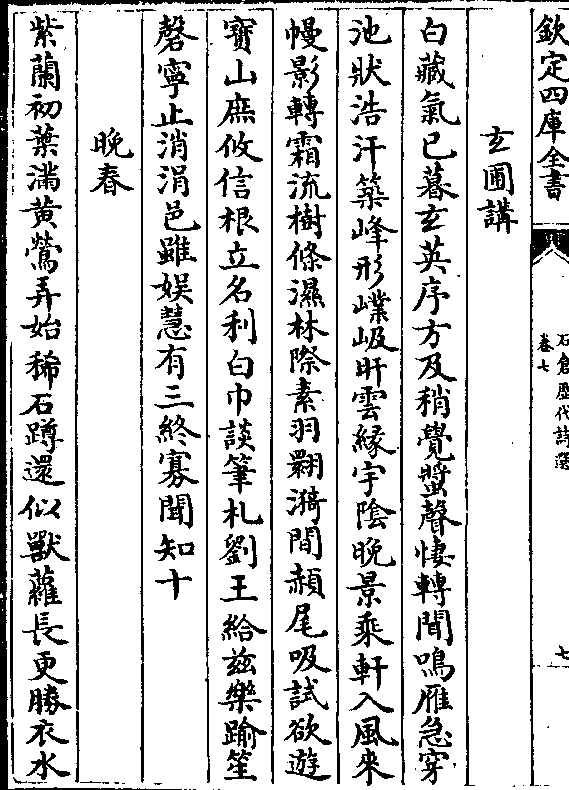 欽定四庫全書
石倉歷代詩選
卷七
七
玄圃講
白藏氣已暮玄英序方及稍覺螿聲悽轉聞鳴雁急穿
池狀浩汗築峰形嶫岋旰雲緣宇陰晚景乘軒入風來
幔影轉霜流樹條濕林際素羽翾漪間赬尾吸試欲遊
寶山庶攸信根立名利白巾談筆札劉王給兹樂踰笙
磬寧止消涓邑雖娛慧有三終寡聞知十
晚春
紫蘭初葉滿黃鶯弄始稀石蹲還似獸蘿長更勝衣水